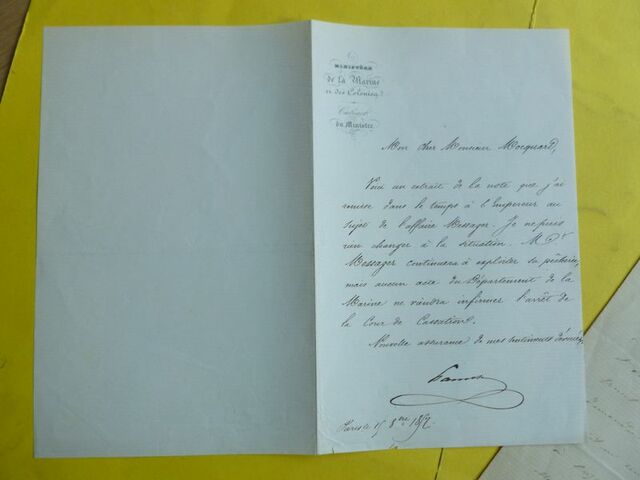 MINISTÈRE
de la Marine
et des Colonies
Cabinet
du Ministre
Mon cher Monsieur Mocquard,
Voici un extrait de la note que j'ai
remise dans le temps à l'Empereur au
sujet de l'affaire Messager. Je ne puis
rien changer à la situation. M
Messager continuera à exploiter sa pêcherie,
mais aucun acte du Département de la
Marine ne viendra infirmer l'arrêt de
la Cour de Cassation.
Nouvelle assurance de mes sentiments dévoués,
Paris le 15 8bre